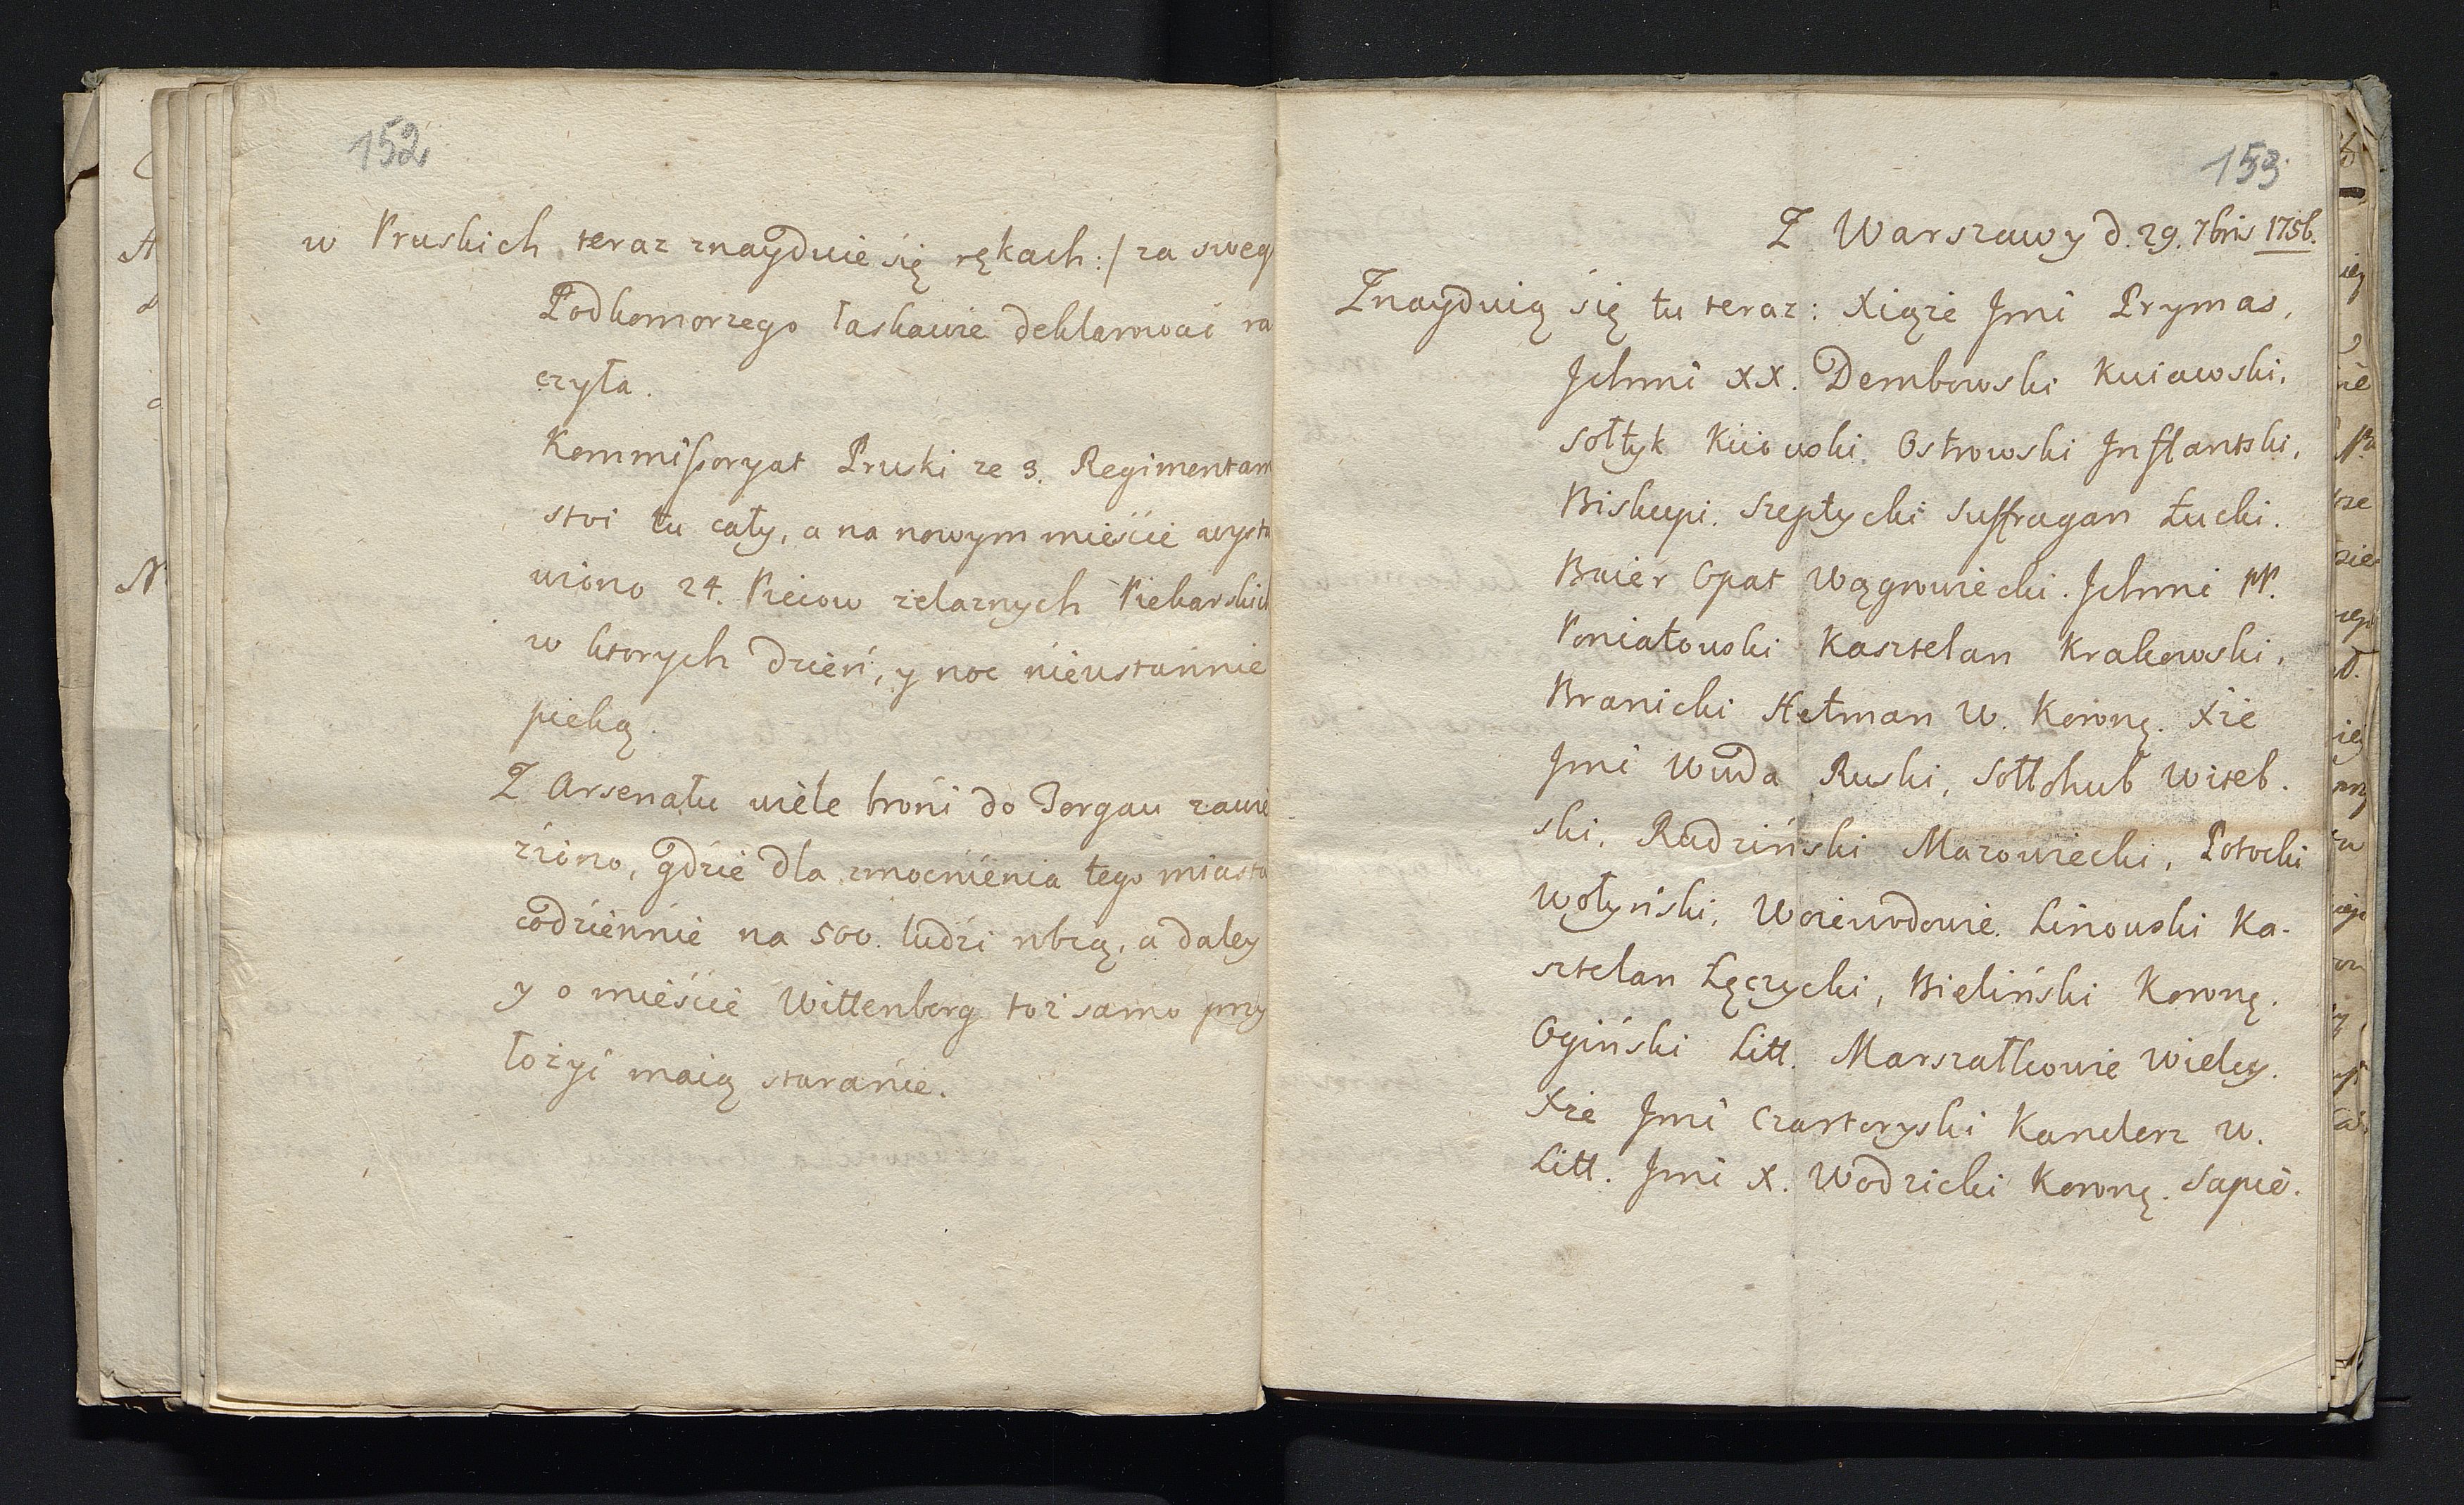 152
w Pruskich teraz znayduie się rękach :/ za sweg
Podkomorzego łaskawie deklarować ra
czyła.
Kommissoryat Pruski ze 3. Regimentam
stoi tu cały, a na nowym mieście wysta
wiono 24. Pieców żelaznych Piekarskich
w ktorych dzień, y noc nieustannie
pieką.
Z Arsenału wiele broni do Torgau zawie
ziono, gdzie dla zmocnienia tego miasta
codziennie na 500. ludzi robią, a daley
y o mieście Wittenberg toż samo przy
łożyć maią staranie.
153
Z Warszawy d. 29. 7bris 1756.
Znayduią się tu teraz: Xiąże Jmć Prymas,
Jchmć XX. Dembowski Kuiawski,
Sołtyk Kiiowski, Ostrowski Inflantski,
Biskupi. Szeptycki Suffragan Łucki.
Baier Opat Wągrowiecki. Jchmć PP.
Poniatowski Kasztelan Krakowski,
Branicki Hetman W. Koronę. Xże
Jmć Wwda Ruski, Sołłohub Witeb.
ski, Rudziński Mazowiecki, Potocki
Wołyński, Woiewodowie. Linowski Ka-
sztelan Łęczycki, Bieliński Koronę.
Ogiński Litt. Marszałkowie Wielcy.
Xże Jmć Czartoryski Kanclerz W.
Litt. Jmć X. Wodzicki Koronę. Sapie.